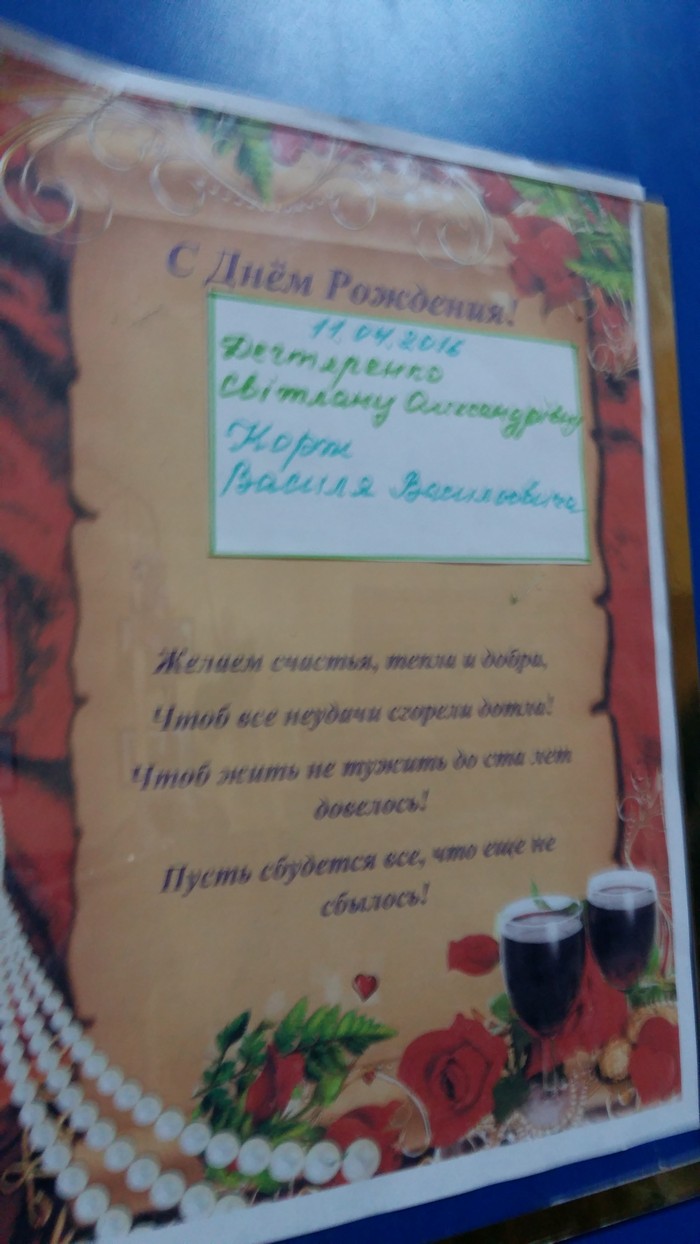 С Днём Рождения!
11.04.2016
Дегтяренко
Світлану Олександрівну
Корж
Василя Васильовича
Желаем счастья, тепла и добра,
Чтоб все неудачи сгорели дотла!
Чтоб жить не тужить до ста лет
довелось!
Пусть сбудется все, что еще не
сбылось!